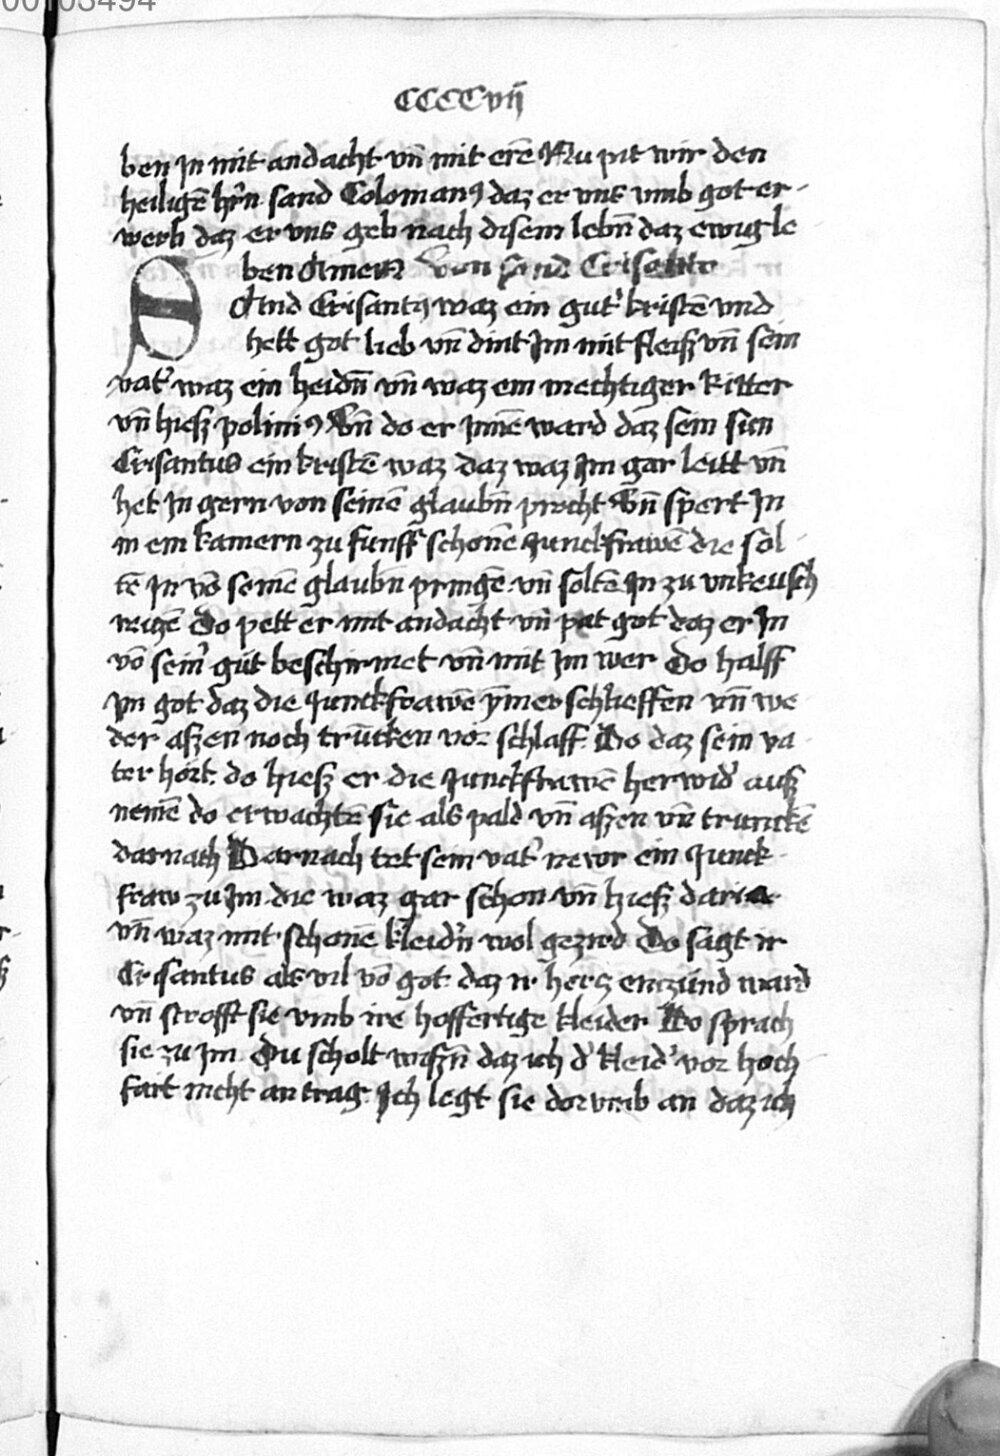 00103494
CCCCvij
ben Jn mit andacht vn̄ mit erē Nu pit wir den
heiligē hr̄n sand Colomanꝰ daz er vns vmb got er-
werb daz er vns geb nach disem lebn̄ daz ewig le
ben Amen Von sand Crisanto
SAnd Crisantꝰ waz ein gut' kristē vnd
hett got lieb vn̄ dint Jm mit fleisz vn̄ sein
vat' waz ein heidn̄ vn̄ waz ein mechtiger Ritter
vn̄ hiesz poliniꝰ Vn̄ do er Jnnē ward daz sein sun
Crisantus ein kristē waz daz waz Jm gar leitt vn̄
het Jn gern von seinē glaubn̄ procht Vn̄ spert Jn
in ein kamern zu funff schonē Junckfrawē die sol
tē Jn vō seinē glaubn̄ pringē vn̄ soltē Jn zu vnkeusch
reizē Do pett er mit andacht vn̄ pat got daz er Jn
vō sein' gūt beschirmet vn̄ mit Jm wer Do halff
Jm got daz die Junckfrawē ȳmer schlieffen vn̄ we
der aszen noch trūcken vor schlaff. Do daz sein va
ter hort. do hiesz er die Junckfrawē her wid' ausz
nemē do erwachtē sie als pald vn̄ aszen vn̄ trunckē
darnach Darnach tet sein vat' newr ein Junck-
fraw zu Jm die waz gar schon vn̄ hiesz daria
vn̄ waz mit schonē kleid'n wol gezird Do sagt ir
Crisantus als vil vō got daz ir hercz enczūnd ward
vn̄ strofft sie vmb ire hoffertige kleider Do sprach
sie zu Jm Du scholt wiszn̄ daz ich d' kleid' vor hoch
fart nicht an trag. Jch legt sie dorvmb an daz ich